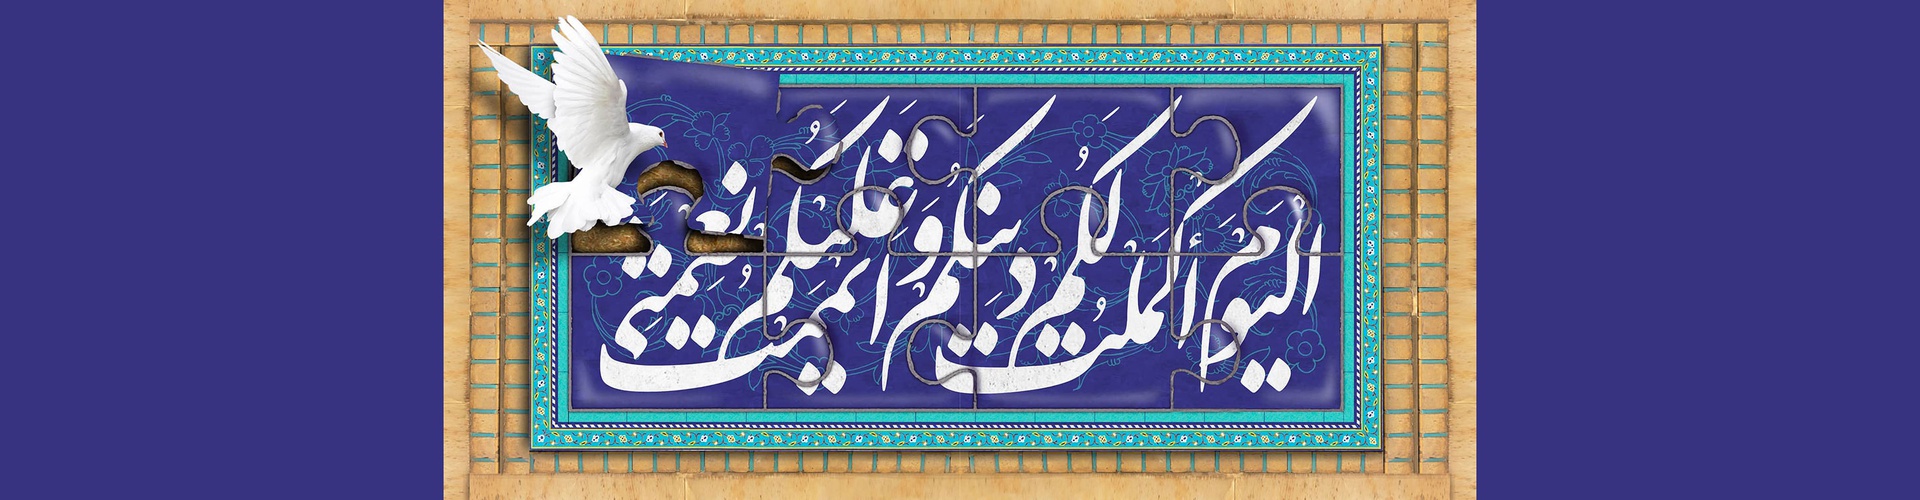 الیَومَ أکمَلتُ لَکُم دینَکُم وَ اتمَمتُ عَلَیکُم نِعمَتی